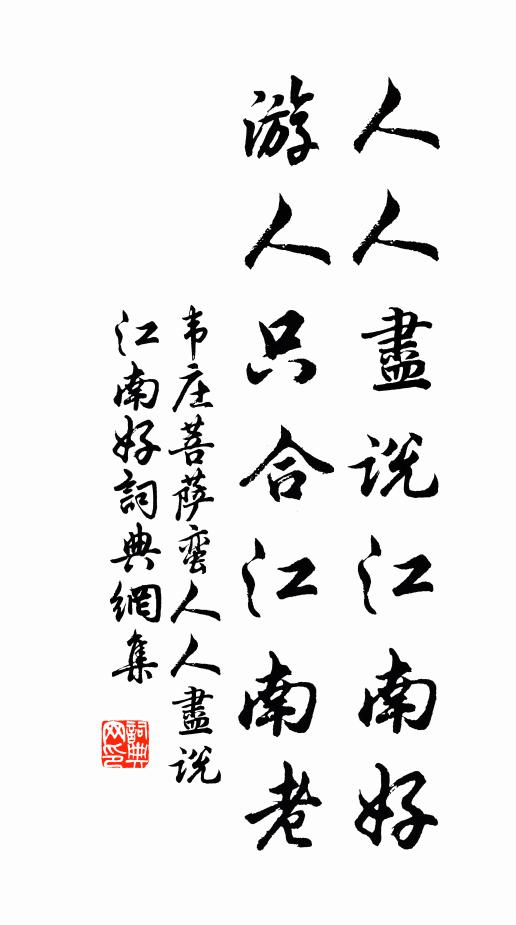 人人盡説江南好
游人只合江南老
韦庄菩萨蛮人人盡説
江南好詞典網集
詞典
网印